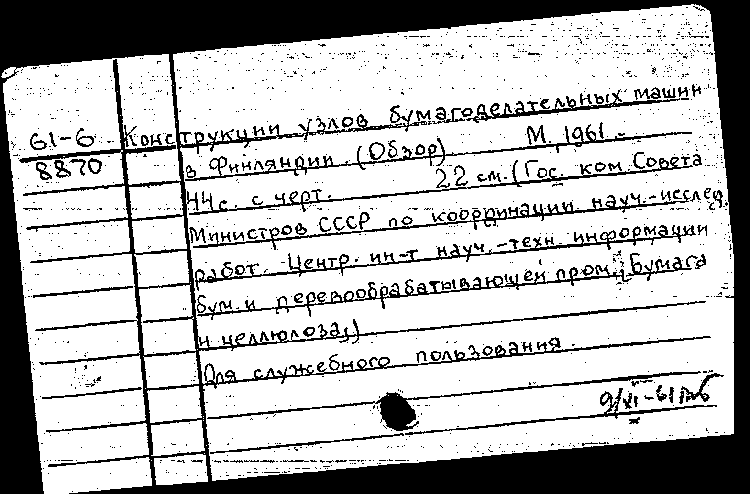 61-6 Конструкции узлов бумагоделательных машин
8870 в Финляндии. (Обзор) М. 1961.-
44с. с черт. 22 см. (Гос. ком. Совета
Министров СССР по координации науч.-исслед.
работ. Центр. ин-т науч.-техн. информации
бум. и деревообрабатывающей пром. Бумага
и целлюлоза.)
Для служебного пользования.
9/XI-61